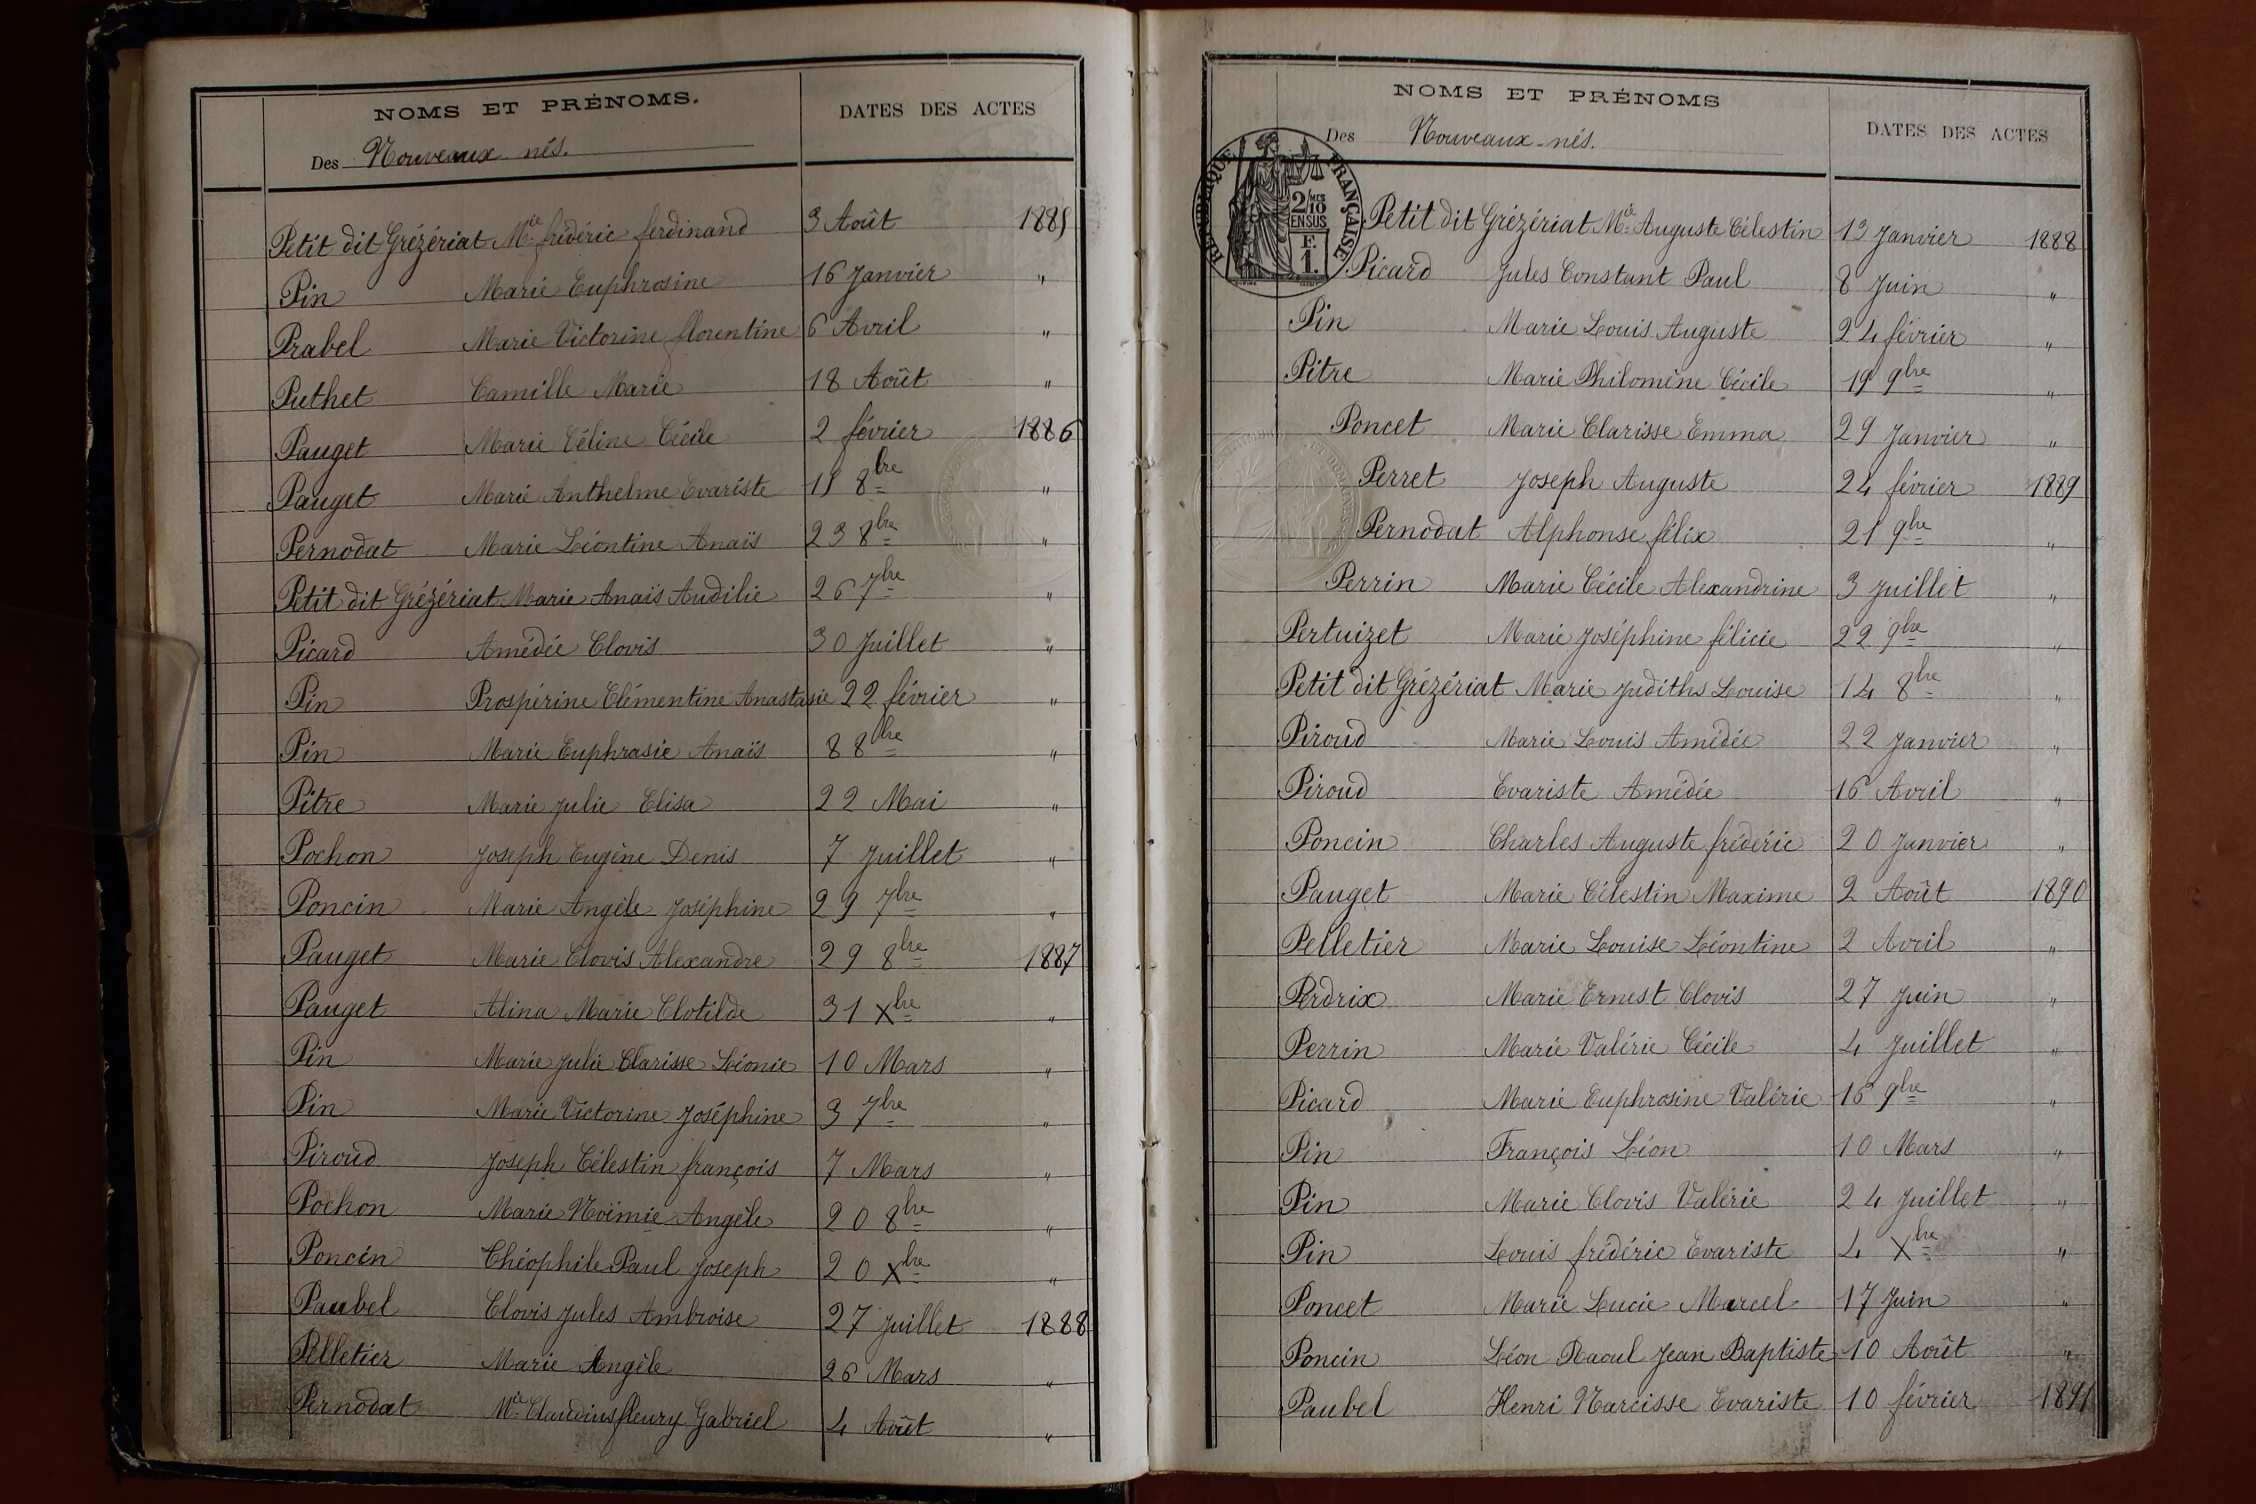 NOMS ET PRÉNOMS. DATES DES ACTES
Des Nouveaux nés.
Petit dit Grézériat Mie frédéric ferdinand 3 Août 1885
Pin Marie Euphrosine 16 Janvier "
Prabel Marie Victorine florentine 6 Avril "
Puthet Camille Marie 18 Août "
Pauget Marie Céline Cécile 2 février 1886
Pauget Marie Anthelme Evariste 15 8bre "
Pernodat Marie Léontine Anaïs 23 8bre "
Petit dit Grézériat Marie Anaïs Audilie 26 7bre "
Picard Amédée Clovis 30 Juillet "
Pin Prospérine Clémentine Anastasie 22 février "
Pin Marie Euphrasie Anaïs 8 8bre "
Pitre Marie Julie Elisa 22 Mai "
Pochon Joseph Eugène Denis 7 Juillet "
Poncin Marie Angèle Joséphine 29 7bre "
Pauget Marie Clovis Alexandre 29 8bre 1887
Pauget Alina Marie Clotilde 31 Xbre "
Pin Marie Julie Clarisse Léonie 10 Mars "
Pin Marie Victorine Joséphine 3 7bre "
Piroud Joseph Célestin françois 7 Mars "
Pochon Marie Noëmie Angèle 20 8bre "
Poncin Théophile Paul Joseph 20 Xbre "
Paubel Clovis Jules Ambroise 27 Juillet 1888
Pelletier Marie Angèle 26 Mars "
Pernodat Mie Claudius fleury Gabriel 4 Août "
NOMS ET PRÉNOMS DATES DES ACTES
Des Nouveaux-nés.
RÉPUBLIQUE FRANÇAISE
2/10 MES
EN SUS
F.
1.
Petit dit Grézériat Mie Auguste Célestin 13 Janvier 1888
Picard Jules Constant Paul 8 Juin "
Pin Marie Louis Auguste 24 février "
Pitre Marie Philomène Cécile 19 9bre "
Poncet Marie Clarisse Emma 29 Janvier "
Perret Joseph Auguste 24 février 1889
Pernodat Alphonse félix 21 9bre "
Perrin Marie Cécile Alexandrine 3 Juillet "
Pertuizet Marie Joséphine félicie 22 9bre "
Petit dit Grézériat Marie Judiths Louise 14 8bre "
Piroud Marie Louis Amédée 22 Janvier "
Piroud Evariste Amédée 16 Avril "
Poncin Charles Auguste frédéric 20 Janvier "
Pauget Marie Célestin Maxime 2 Août 1890
Pelletier Marie Louise Léontine 2 Avril "
Perdrix Marie Ernest Clovis 27 Juin "
Perrin Marie Valérie Cécile 4 Juillet "
Picard Marie Euphrosine Valérie 16 9bre "
Pin François Léon 10 Mars "
Pin Marie Clovis Valérie 24 Juillet "
Pin Louis frédéric Evariste 4 Xbre "
Poncet Marie Lucie Marcel 17 Juin "
Poncin Léon Raoul Jean Baptiste 10 Août "
Paubel Henri Narcisse Evariste 10 février 1891